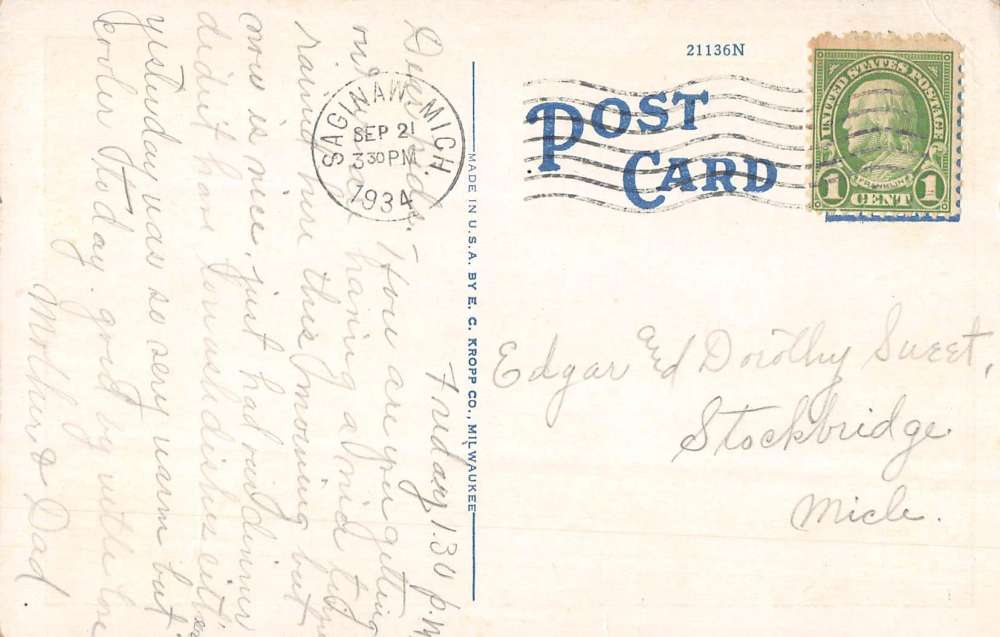 21136N
POST CARD
UNITED STATES POSTAGE
FRANKLIN
1 CENT 1
SAGINAW, MICH
SEP 21
3 30 PM
1934
MADE IN U.S.A. BY E. C. KROPP CO., MILWAUKEE
Friday 1.30 p.m
Dear Kids:- How are you getting
on? having a
rainy here this morning but
now is nice, just had our dinner
didn't have to wash dishes either
yesterday was so very warm but
cooler today. good by with love
Mother & Dad
Edgar and Dorothy Sweet,
Stockbridge
Mich.